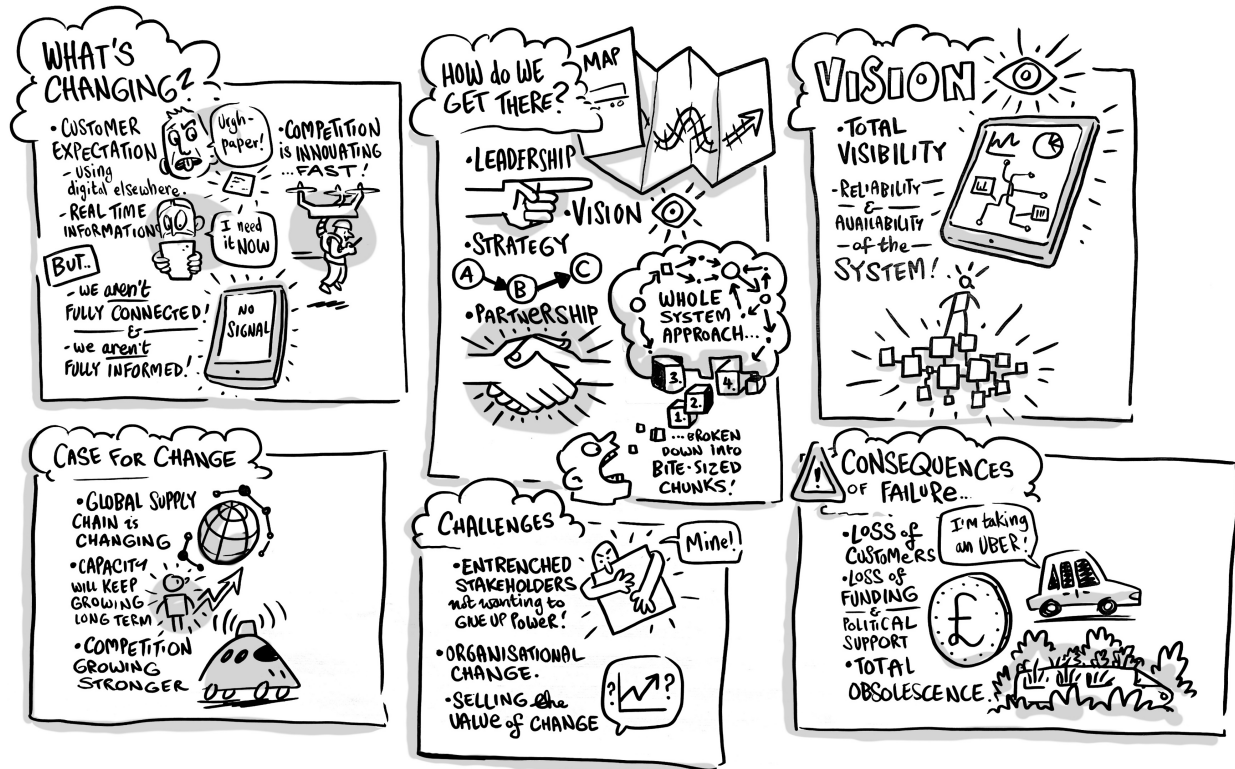 WHAT'S
CHANGING?
• CUSTOMER
EXPECTATION
- using
digital elsewhere.
- REAL TIME
INFORMATION
Urgh-
paper!
I need
it NOW
• COMPETITION
is INNOVATING
... FAST!
BUT..
- WE aren't
FULLY CONNECTED!
&
- we aren't
FULLY INFORMED!
NO
SIGNAL
CASE FOR CHANGE
• GLOBAL SUPPLY
CHAIN is
CHANGING
• CAPACITY
WILL KEEP
GROWING
LONG TERM
• COMPETITION
GROWING
STRONGER
HOW do WE
GET THERE?
MAP
• LEADERSHIP
• VISION
• STRATEGY
A
B
C
• PARTNERSHIP
WHOLE
SYSTEM
APPROACH...
3.
4.
2.
1.
... BROKEN
DOWN INTO
BITE-SIZED
CHUNKS!
CHALLENGES
• ENTRENCHED
STAKEHOLDERS
not wanting to
GIVE UP POWER!
Mine!!
• ORGANISATIONAL
CHANGE.
• SELLING the
VALUE of CHANGE
? ?
VISION
• TOTAL
VISIBILITY
- RELIABILITY -
&
AVAILABILITY
- of the -
SYSTEM!
!
CONSEQUENCES
OF FAILURE...
• LOSS of
CUSTOMERS
• LOSS of
FUNDING
&
POLITICAL
SUPPORT
• TOTAL
OBSOLESCENCE.
I'M taking
an UBER!
£